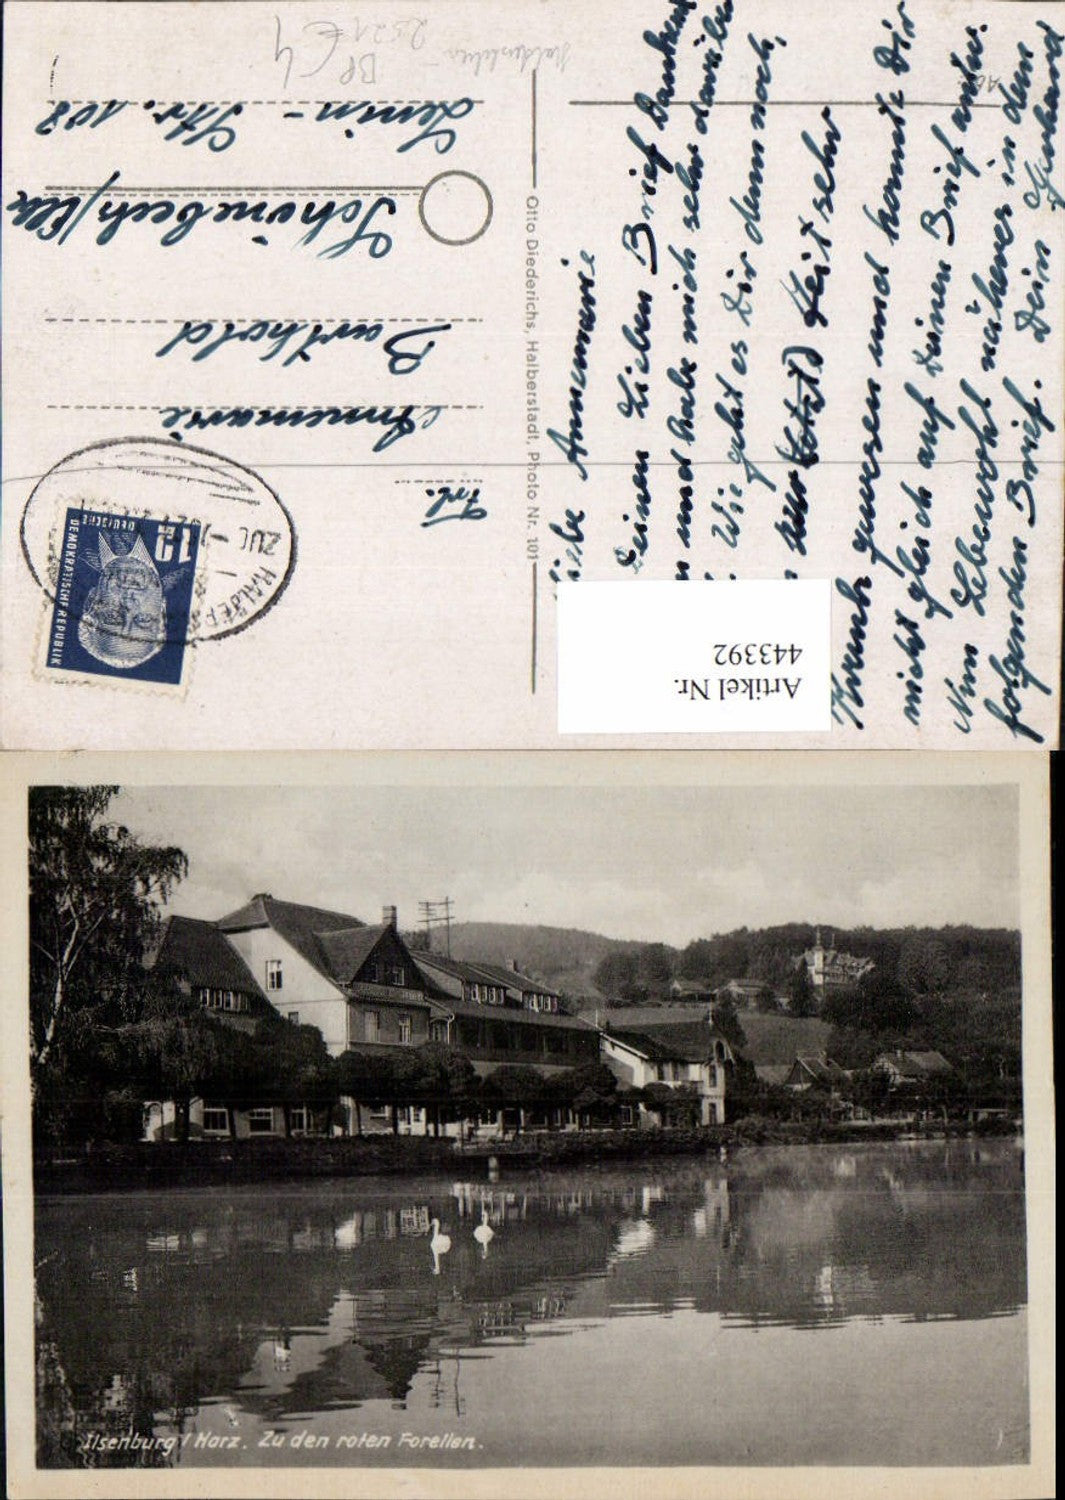 Liebe Annemarie
Deinen lieben Brief Dankend
und habe mich sehr darüber
Wie geht es Dir denn noch,
zur Zeit sehr
Krank gewesen und konnte Dir
nicht gleich auf Deinen Brief antw.
Nun Lebewohl näheres in dem
folgenden Brief. Dein Gerhard
Otto Diederichs, Halberstadt, Photo Nr. 101
Frl.
Annemarie
Barthold
Schönebeck/Elbe
Lenin-Str. 108
BP
DEUTSCHE
DEMOKRATISCHE REPUBLIK
12
ZUG
Artikel Nr.
443392
Ilsenburg / Harz. Zu den roten Forellen.